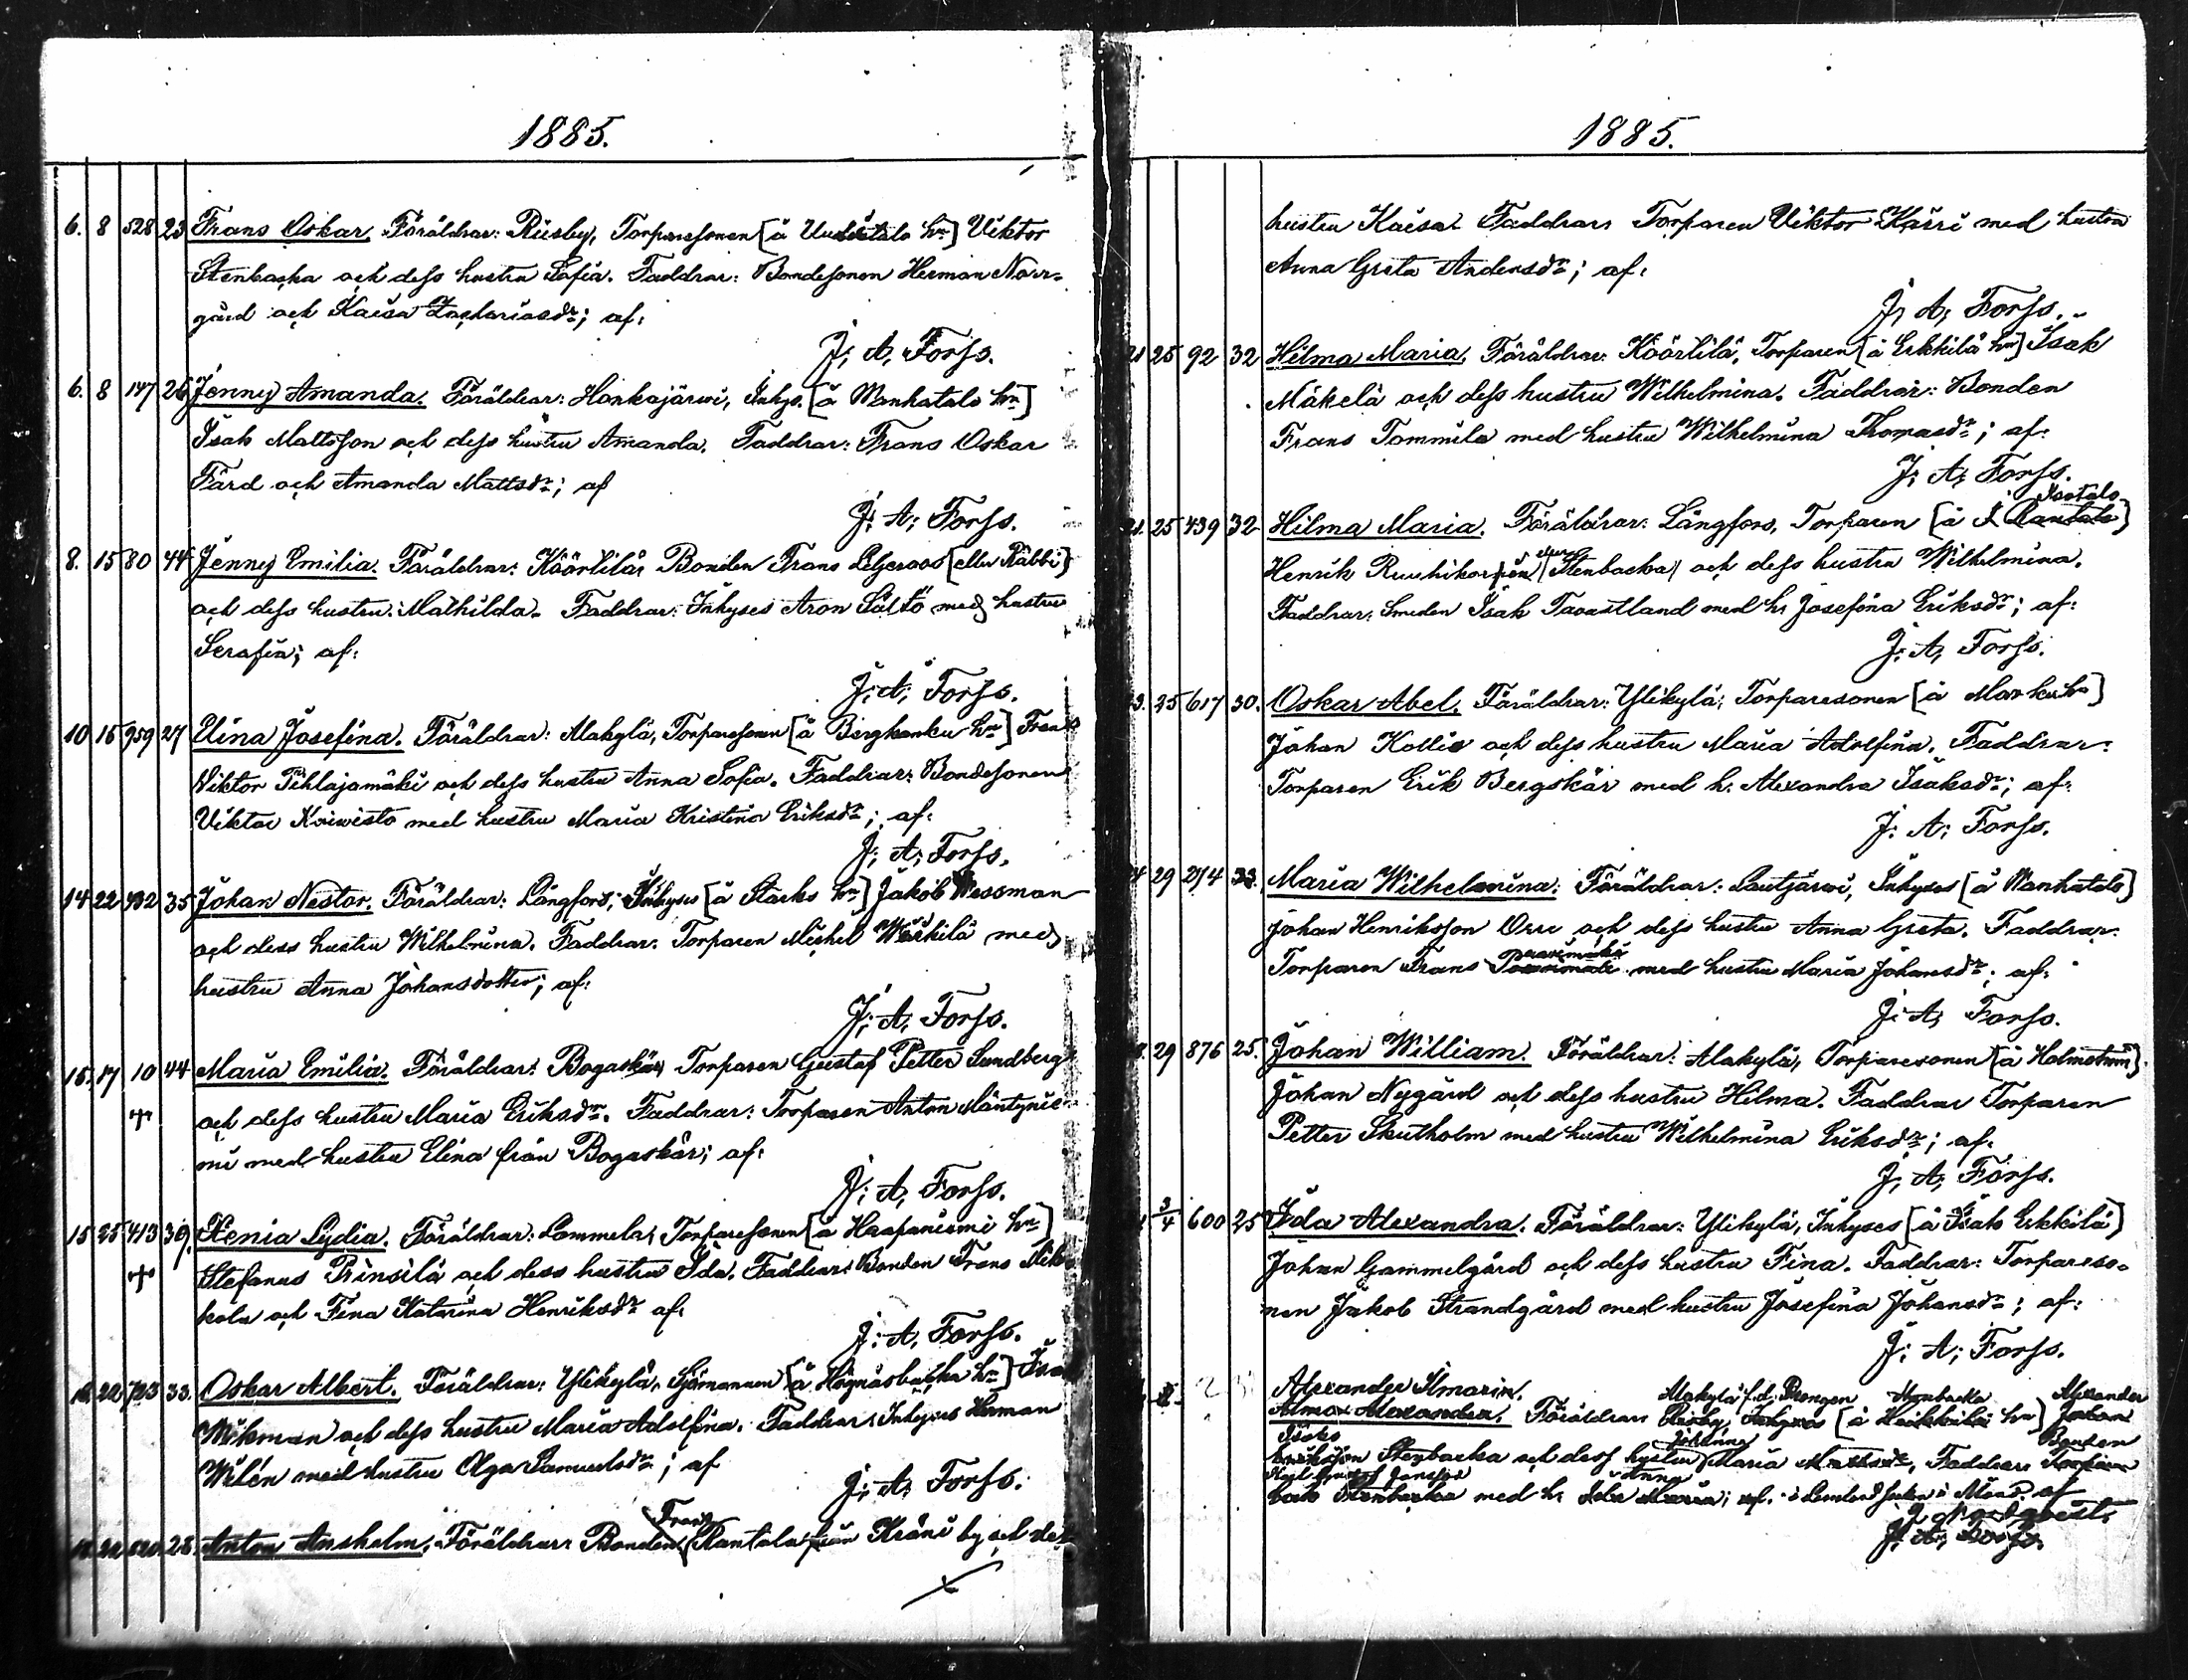 1885.
6. 8 528 23 Frans Oskar. Föräldrar: Riisby, Torparesonen [å Uuditalo hn] Viktor
Stenbacka och dess hustru Sofia. Faddrar: Bondesonen Herman Norr-
gård och Kaisa Zachariasdr; af:
J. A. Forss.
6. 8 147 26 Jenny Amanda. Föräldrar: Honkajärwi, Inhys. [å Wanhatalo hn]
Isak Mattsson och dess hustru Amanda. Faddrar: Frans Oskar
Färd och Amanda Mattsdr; af
J. A. Forss.
8. 15 80 44 Jenny Emilia. Föräldrar: Köörtilä, Bonden Frans Liljeroos [eller Räbbi]
och dess hustru Mathilda. Faddrar: Inhyses Aron Söltö med hustru
Serafia; af:
J. A. Forss.
10 15 959 27 Elina Josefina. Föräldrar: Alakylä, Torparesonen [å Bergkanku hn] Frans
Viktor Pihlajamäki och dess hustru Anna Sofia. Faddrar: Bondesonen
Viktor Koiwisto med hustru Maria Kristina Eriksdr; af:
J. A. Forss.
14 22 432 35 Johan Nestor. Föräldrar: Långfors, Inhyses [å Starks hn] Jakob Wessman
och dess hustru Wilhelmina. Faddrar: Torparen Michel Wäkilä med
hustru Anna Johansdotter; af:
J. A. Forss.
15. 17 10 44 Maria Emilia. Föräldrar: Bogaskär, Torparen Gustaf Petter Sundberg
och dess hustru Maria Eriksdr. Faddrar: Torparen Anton Mäntynie-
mi med hustru Elina från Bogaskär; af:
J. A. Forss.
15 25 413 39. Xenia Lydia. Föräldrar: Lammela, Torparesonen [å Haapaniemi hn]
Stefanus Prinsilä och dess hustru Ida. Faddrar: Bonden Frans Mik-
kola och Fina Katarina Henriksdr af:
J. A. Forss.
22 723 33. Oskar Albert. Föräldrar: Ylikylä, Sjömannen [å Högnäsbacka hn] Isak
Wikman och dess hustru Maria Adolfina. Faddrar: Inhyses Herman
Wilén med hustru Olga Samuelsdr; af
J. A. Forss.
28 Anton Anshelm. Föräldrar: Bonden Frans Rantala från Kräni by och dess
1885.
hustru Kaisa. Faddrar: Torparen Viktor Kärri med hustru
Anna Greta Andersdr; af:
J. A. Forss.
21 25 92 32 Hilma Maria. Föräldrar: Köörtilä, Torparen [å Erkkilä hn] Isak
Mäkelä och dess hustru Wilhelmina. Faddrar: Bonden
Frans Tommila med hustru Wilhelmina Thomasdr; af:
J. A. Forss.
Isotalo
21. 25 439 32 Hilma Maria. Föräldrar: Långfors, Torparen [å Rantala]
Henrik Ruuhikorpi eller Stenbacka och dess hustru Wilhelmina.
Faddrar: Smeden Isak Tavastland med h. Josefina Eriksdr; af:
J. A. Forss.
23. 25 617 30. Oskar Abel. Föräldrar: Ylikylä; Torparesonen [å Markus hn]
Johan Kallio och dess hustru Maria Adolfina. Faddrar:
Torparen Erik Bergskär med h. Alexandra Isaksdr; af:
J. A. Forss.
24 29 274 33. Maria Wilhelmina. Föräldrar: Lautjärwi, Inhyses [å Wanhatalo]
Johan Henriksson Orre och dess hustru Anna Greta. Faddrar:
Torparen Frans med hustru Maria Johansdr; af:
J. A. Forss.
29 876 25. Johan William. Föräldrar: Alakylä, Torparesonen [å Holmström]
Johan Nygård och dess hustru Hilma. Faddrar Torparen
Petter Skutholm med hustru Wilhelmina Eriksdr; af:
J. A. Forss.
3/4 600 25 Ida Alexandra. Föräldrar: Ylikylä, Inhyses [å Isak Erkkilä]
Johan Gammelgård och dess hustru Fina. Faddrar: Torpareso-
nen Jakob Strandgård med hustru Josefina Johansdr; af:
J. A. Forss.
Alexander Ilmarin. Alakylä Stenbacka Alexander
Alma Alexandra. Föräldrar: Riisby, Inhyses [å Heikkilä hn] Johan
Isaks Johanna Bonden
Eriksson Stenbacka och dess hustru Maria Faddrar:
Gustaf Jansson Anna
Stenbacka med h. Ida Maria; af: af
J Nordqvist.
J. A. Forss.